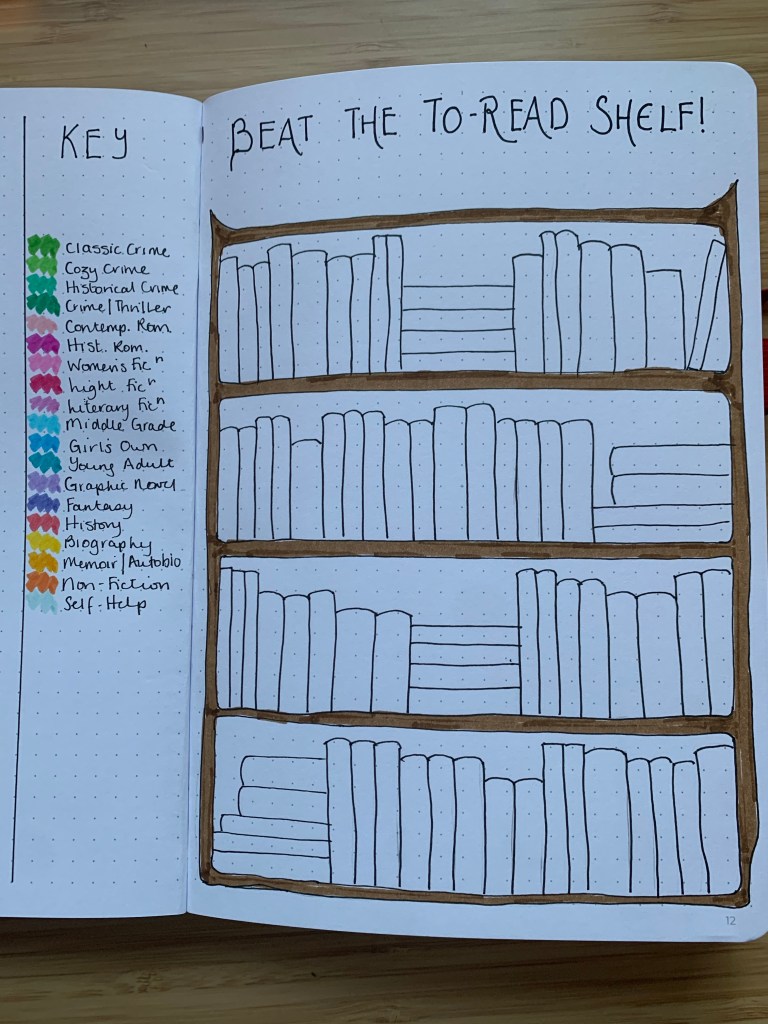 KEY
Classic Crime
Cozy Crime
Historical Crime
Crime/Thriller
Contemp. Rom.
Hist. Rom.
Women's Ficⁿ
Light Ficⁿ
Literary Ficⁿ
Middle Grade
Girls Own
Young Adult
Graphic Novel
Fantasy
History
Biography
Memoir/Autobio
Non-Fiction
Self-Help
BEAT THE TO-READ SHELF!
12